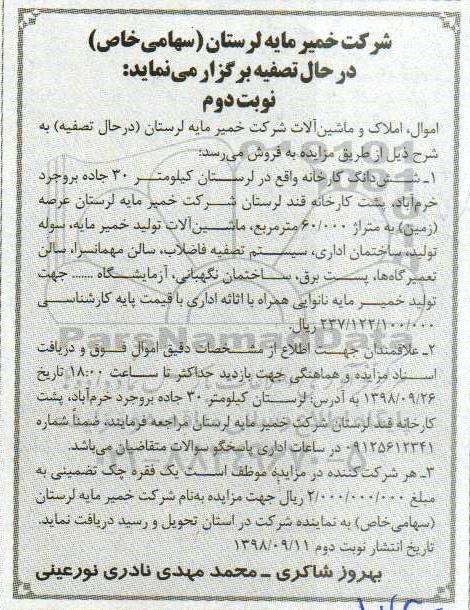 شرکت خمیر مایه لرستان (سهامی خاص)
در حال تصفیه برگزار می‌نماید:
نوبت دوم
اموال، املاک و ماشین‌آلات شرکت خمیر مایه لرستان (درحال تصفیه) به
شرح ذیل از طریق مزایده به فروش می‌رسد:
۱ـ شـش‌دانگ کارخانه واقع در لرسـتان کیلومتـر ۳۰ جاده بروجرد
خرم‌آباد، پشت کارخانه قند لرستان شـرکت خمیر مایه لرستان عرصه
(زمین) به متراژ ۶۰/۰۰۰ مترمربع، ماشـین‌آلات تولید خمیر مایه، سوله
تولید، ساختمان اداری، سیسـتم تصفیه فاضلاب، سالن مهمانسرا، سالن
تعمیرگاه‌ها، پسـت برق، سـاختمان نگهبانی، آزمایشـگاه ...... جهت
تولید خمیـر مایه نانوایی همراه با اثاثه اداری با قیمت پایه کارشناسـی
۲۳۷/۱۲۲/۱۰۰/۰۰۰ ریال.
۲ـ علاقمندان جهـت اطلاع از مشـخصات دقیق اموال فـوق و دریافت
اسـناد مزایده و هماهنگی جهت بازدید حداکثر تا سـاعت ۱۸:۰۰ تاریخ
۱۳۹۸/۰۹/۲۶ به آدرس: لرسـتان کیلومتر ۳۰ جاده بروجرد خرم‌آباد، پشت
کارخانه قند لرستان شرکت خمیر مایه لرستان مراجعه فرمایند. ضمناً شماره
۰۹۱۲۵۶۱۲۳۴۱ در ساعات اداری پاسخگو سوالات متقاضیان می‌باشد.
۳ـ هر شـرکت کننده در مزایده موظف اسـت یک فقره چک تضمینی به
مبلغ ۲/۰۰۰/۰۰۰/۰۰۰ ریال جهت مزایده به‌نام شرکت خمیر مایه لرستان
(سهامی‌خاص) به نماینده شرکت در استان تحویل و رسید دریافت نماید.
تاریخ انتشار نوبت دوم ۱۳۹۸/۰۹/۱۱
بهروز شاکری ـ محمد مهدی نادری نورعینی
ParsNamadData